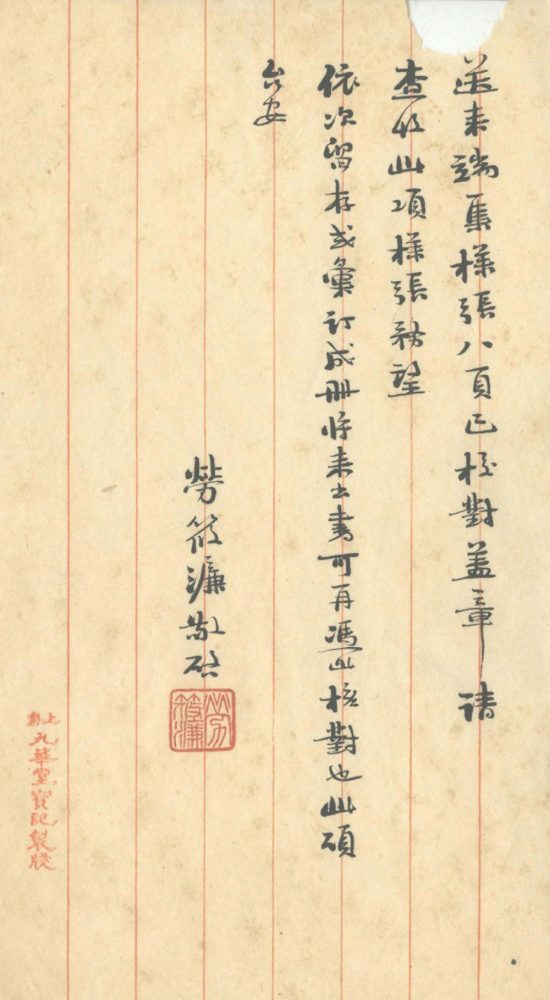 送来端匋樣張八頁已校對蓋章請
查收此項樣張務望
依次留存或彙訂成冊將來出書可再馮此核對也此頌
台安
勞篠濂敬啓
上海九華堂寶記製牋